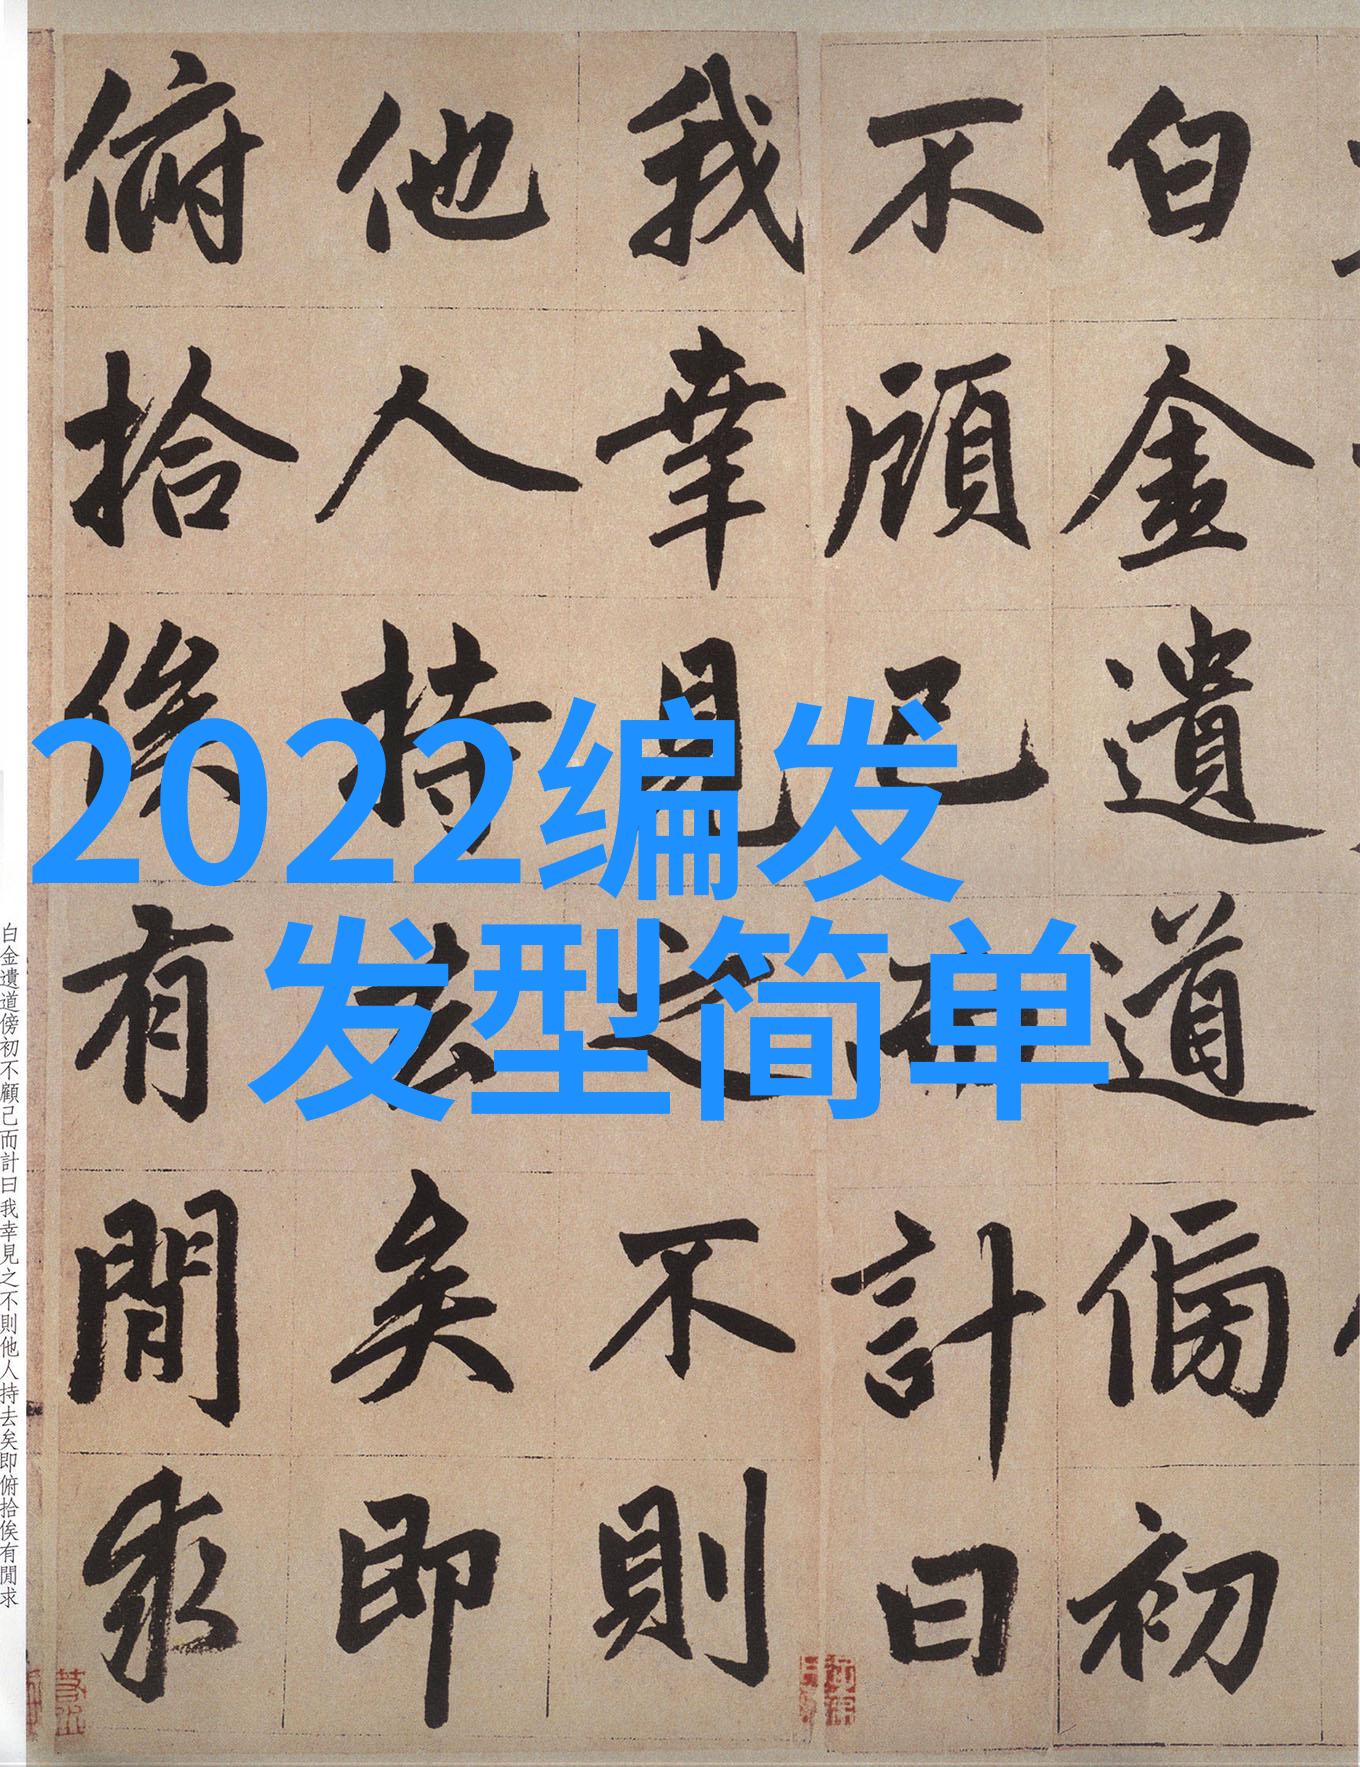 白金遺道傍初
不顧己而計曰
我幸見之不則
他人持去矣即
俯拾俟有閒求
2022编发
发型简单
白金遺道傍初不顧己而計曰我幸見之不則他人持去矣即俯拾俟有閒求